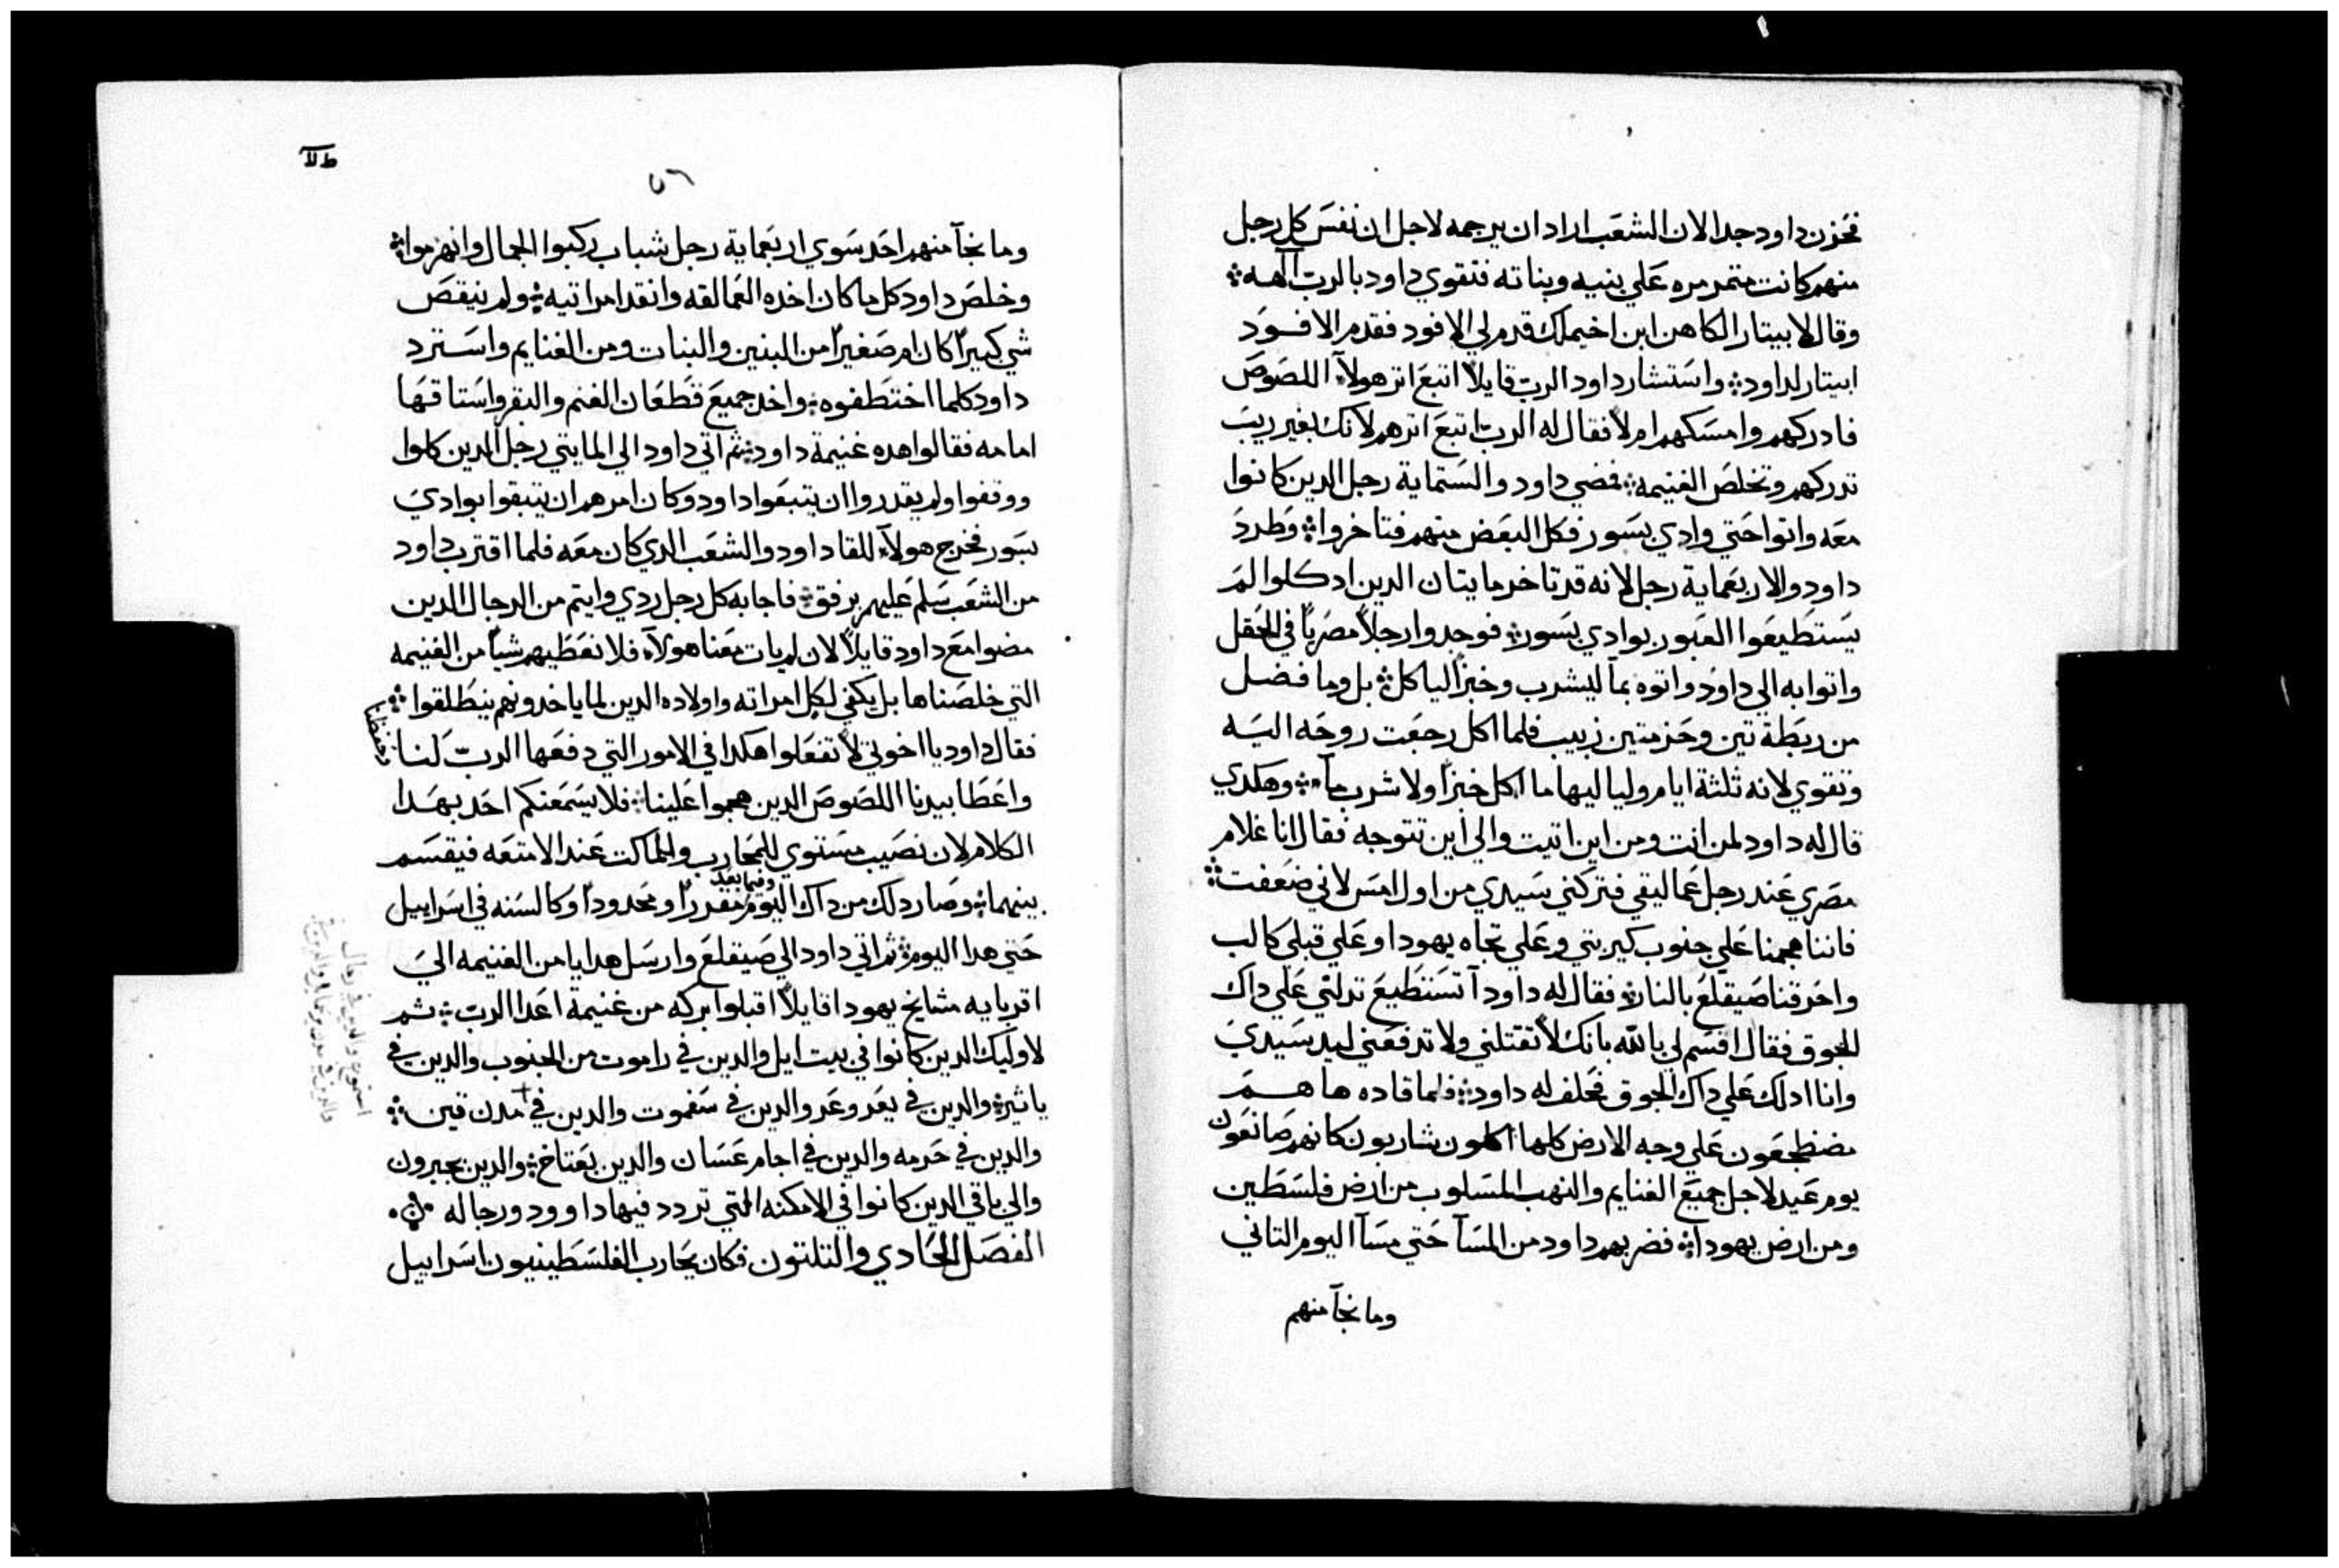 فحزن داود جدا لان الشعب اراد ان يرجمه لاجل ان نفس كل رجل
منهم كانت متمرمره علي بنيه وبناته فتقوي داود بالرب آلهه ܀
وقال لابيتار الكاهن ابن اخيملك قدم لي الافود فقدم الافود
ابيتار لداود ܀ واستشار داود الرب قايلاً اتبع اثر هولآء اللصوص
فادركهم وامسكهم ام لا فقال له الرب اتبع اثرهم لانك بغير ريب
تدركهم وتخلص الغنيمه ܀ فمضي داود والستماية رجل الدين كانوا
معه واتوا حتي وادي بسور فكل البعض منهم فتاخروا ܀ وطرد
داود والاربعماية رجل لانه قد تاخر مايتان الدين اد كلوا لم
يستطيعوا العبور بوادي بسور ܀ فوجدوا رجلاً مصرياً في الحقل
واتوا به الي داود واتوه بمآ ليشرب وخبزاً لياكل ܀ بل وما فضل
من ربطة تين وحزمتين زبيب فلما اكل رجعت روحه اليه
وتقوي لانه ثلثة ايام ولياليها ما اكل خبزاً ولا شرب مآء ܀ وهكدي
قال له داود لمن انت ومن اين اتيت والي اين تتوجه فقال انا غلام
مصري عند رجل عماليقي فتركني سيدي من اول امس لاني ضعفت ܀
فاننا هجمنا علي جنوب كيريتي وعلي تجاه يهودا وعلي قبلي كالب
واحرقنا صيقلع بالنار ܀ فقال له داود آتستطيع تدلني علي داك
الجوق فقال اقسم لي بالله بانك لا تقتلني ولا تدفعني ليد سيدي
وانا ادلك علي داك الجوق فحلف له داود ܀ فلما قاده ها هم
مضطجعون علي وجه الارض كلها اكلون شاربون كانهم صانعون
يوم عيد لاجل جميع الغنايم والنهب المسلوب من ارض فلسطين
ومن ارض يهودا ܀ فضربهم داود من المسآ حتي مسآ اليوم التاني
وما نجآ منهم
٥٦
وما نجآ منهم احد سوي اربعماية رجل شباب ركبوا الجمال وانهزموا ܀
وخلص داود كل ما كان اخده العمالقه وانقد امراتيه ܀ ولم ينقص
شي كبيراً كان ام صغيراً من البنين والبنات ومن الغنايم واسترد
داود كلما اختطفوه ܀ واخد جميع قطعان الغنم والبقر واستاقها
امامه فقالوا هده غنيمة داود ܀ ثم اتي داود الي المايتي رجل الدين كلوا
ووقفوا ولم يقدروا ان يتبعوا داود وكان امرهم ان يتبقوا بوادي
بسور فخرج هولآء للقا داود والشعب الدي كان معه فلما اقترب داود
من الشعب سلم عليهم برفق ܀ فاجابه كل رجل ردي وايتم من الرجال الدين
مضوا مع داود قايلاً لان لم يات معنا هولآء فلا نعطيهم شياً من الغنيمه
التي خلصناها بل يكفي لكل امراته واولاده الدين لما ياخدونهم ينطلقوا ܀
فقال داود يا اخوتي لا تفعلوا هكدا في الامور التي دفعها الرب لنا وحفظنا
واعطا بيدنا اللصوص الدين هجموا علينا ܀ فلا يسمعنكم احد بهدا
الكلام لان نصيب مستوي للمحارب والماكت عند الامتعه فيقسم
بينهما ܀ وصار دلك من داك اليوم وفيما بعد مقدراً ومحدوداً وكالسنه في اسراييل
حتي هدا اليوم ܀ ثم اتي داود الي صيقلع وارسل هدايا من الغنيمه الي
اقربايه مشايخ يهودا قايلاً اقبلوا بركه من غنيمة اعدا الرب ܀ ثم
لاوليك الدين كانوا في بيت ايل والدين في راموت من الجنوب والدين في
ياثير ܀ والدين في يعروعر والدين في سغموت والدين في مدن قين ܀
والدين في حرمه والدين في اجام عسان والدين بعتاخ ܀ والدين بحبرون
والي باقي الدين كانوا في الامكنه التي تردد فيها داوود ورجاله
الفصل الحادي والتلتون فكان يحارب الفلسطينيون اسراييل